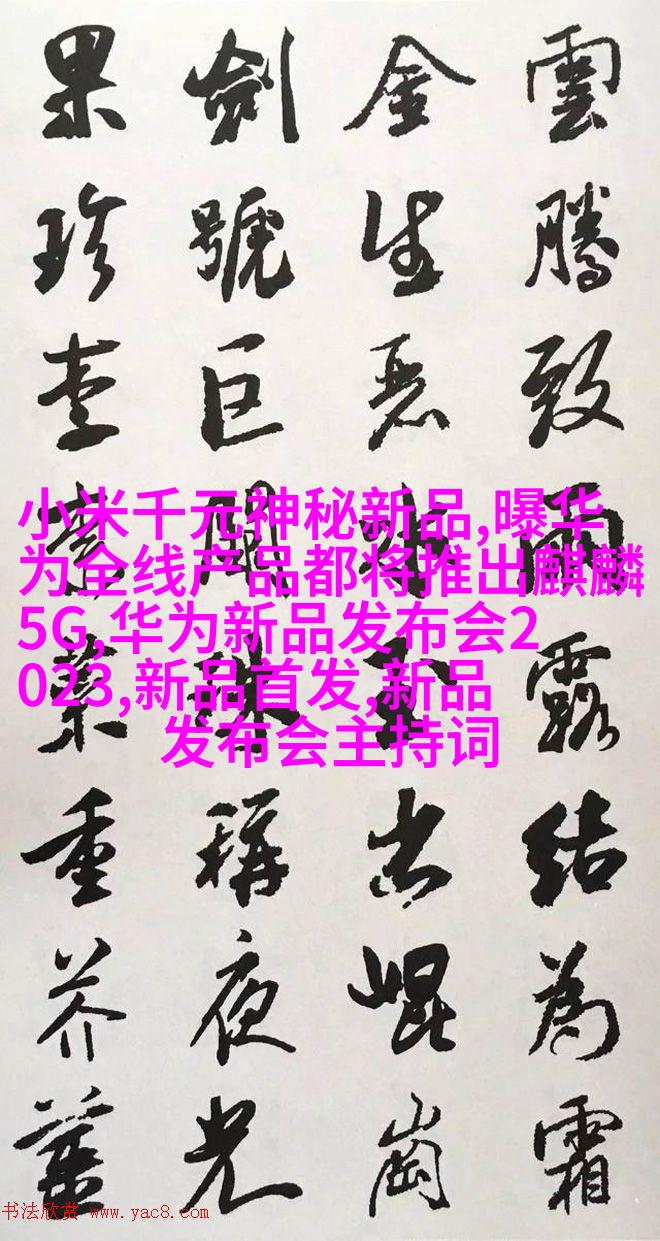 雲騰致雨露結為霜
金生麗水玉出崐崗
劍號巨闕珠稱夜光
果珍李柰菜重芥薑
小米千元神秘新品,曝华
为全线产品都将推出麒麟
5G,华为新品发布会2
023,新品首发,新品
发布会主持词
书法欣赏 www.yac8.com